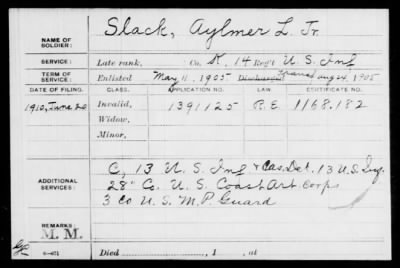 NAME OF SOLDIER: Slack, Aylmer L. Jr.
SERVICE: Late rank, Co. K, 14 Reg't U. S. Inf
TERM OF SERVICE: Enlisted May 11, 1905 Discharged Trans Aug 24, 1905
DATE OF FILING. CLASS. APPLICATION NO. LAW. CERTIFICATE NO.
1910, June 20 Invalid, 1391125 R.E. 1168.182
Widow,
Minor,
C, 13 U. S. Inf & Cas. Det. 13 U. S. Inf.
ADDITIONAL SERVICES: 28" Co. U. S. Coast Art. Corps
3 Co U. S. M. P. Guard
REMARKS:
M. M.
Died , 1 , at